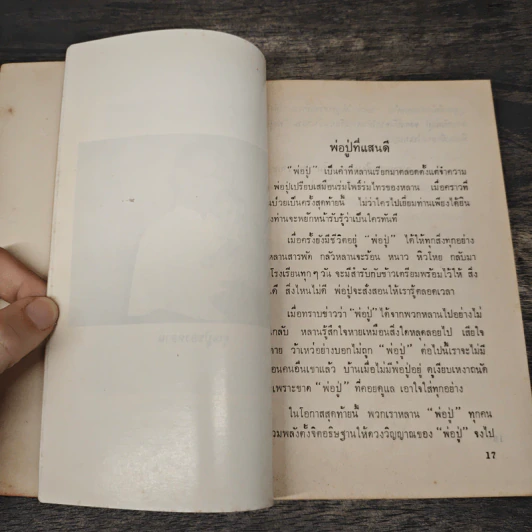 พ่อปู่ที่แสนดี
"พ่อปู่" เป็นคำที่หลานเรียกมาตลอดตั้งแต่จำความ
พ่อปู่เปรียบเสมือนร่มโพธิ์ร่มไทรของหลาน เมื่อคราวที่
ป่วยเป็นครั้งสุดท้ายนี้ ไม่ว่าใครไปเยี่ยมท่านเพียงได้ยิน
งท่านจะพยักหน้ารับรู้ว่าเป็นใครทันที
เมื่อครั้งยังมีชีวิตอยู่ "พ่อปู่" ได้ให้ทุกสิ่งทุกอย่าง
หลานสารพัด กลัวหลานจะร้อน หนาว หิวโหย กลับมา
โรงเรียนทุก ๆ วัน จะมีสำรับกับข้าวเตรียมพร้อมไว้ให้ สิ่ง
ดี สิ่งไหนไม่ดี พ่อปู่จะสั่งสอนให้เรารู้ตลอดเวลา
เมื่อทราบข่าวว่า "พ่อปู่" ได้จากพวกหลานไปอย่างไม่
กลับ หลานรู้สึกใจหายเหมือนสิ่งใดหลุดลอยไป เสียใจ
าย ว้าเหว่อย่างบอกไม่ถูก "พ่อปู่" ต่อไปนี้เราจะไม่มี
อนคนอื่นเขาแล้ว บ้านเมื่อไม่มีพ่อปู่อยู่ ดูเงียบเหงาถนัดต
เพราะขาด "พ่อปู่" ที่คอยดูแล เอาใจใส่ทุกอย่าง
ในโอกาสสุดท้ายนี้ พวกเราหลาน "พ่อปู่" ทุกคน
วมพลังตั้งจิตอธิษฐานให้ดวงวิญญาณของ "พ่อปู่" จงไป
17